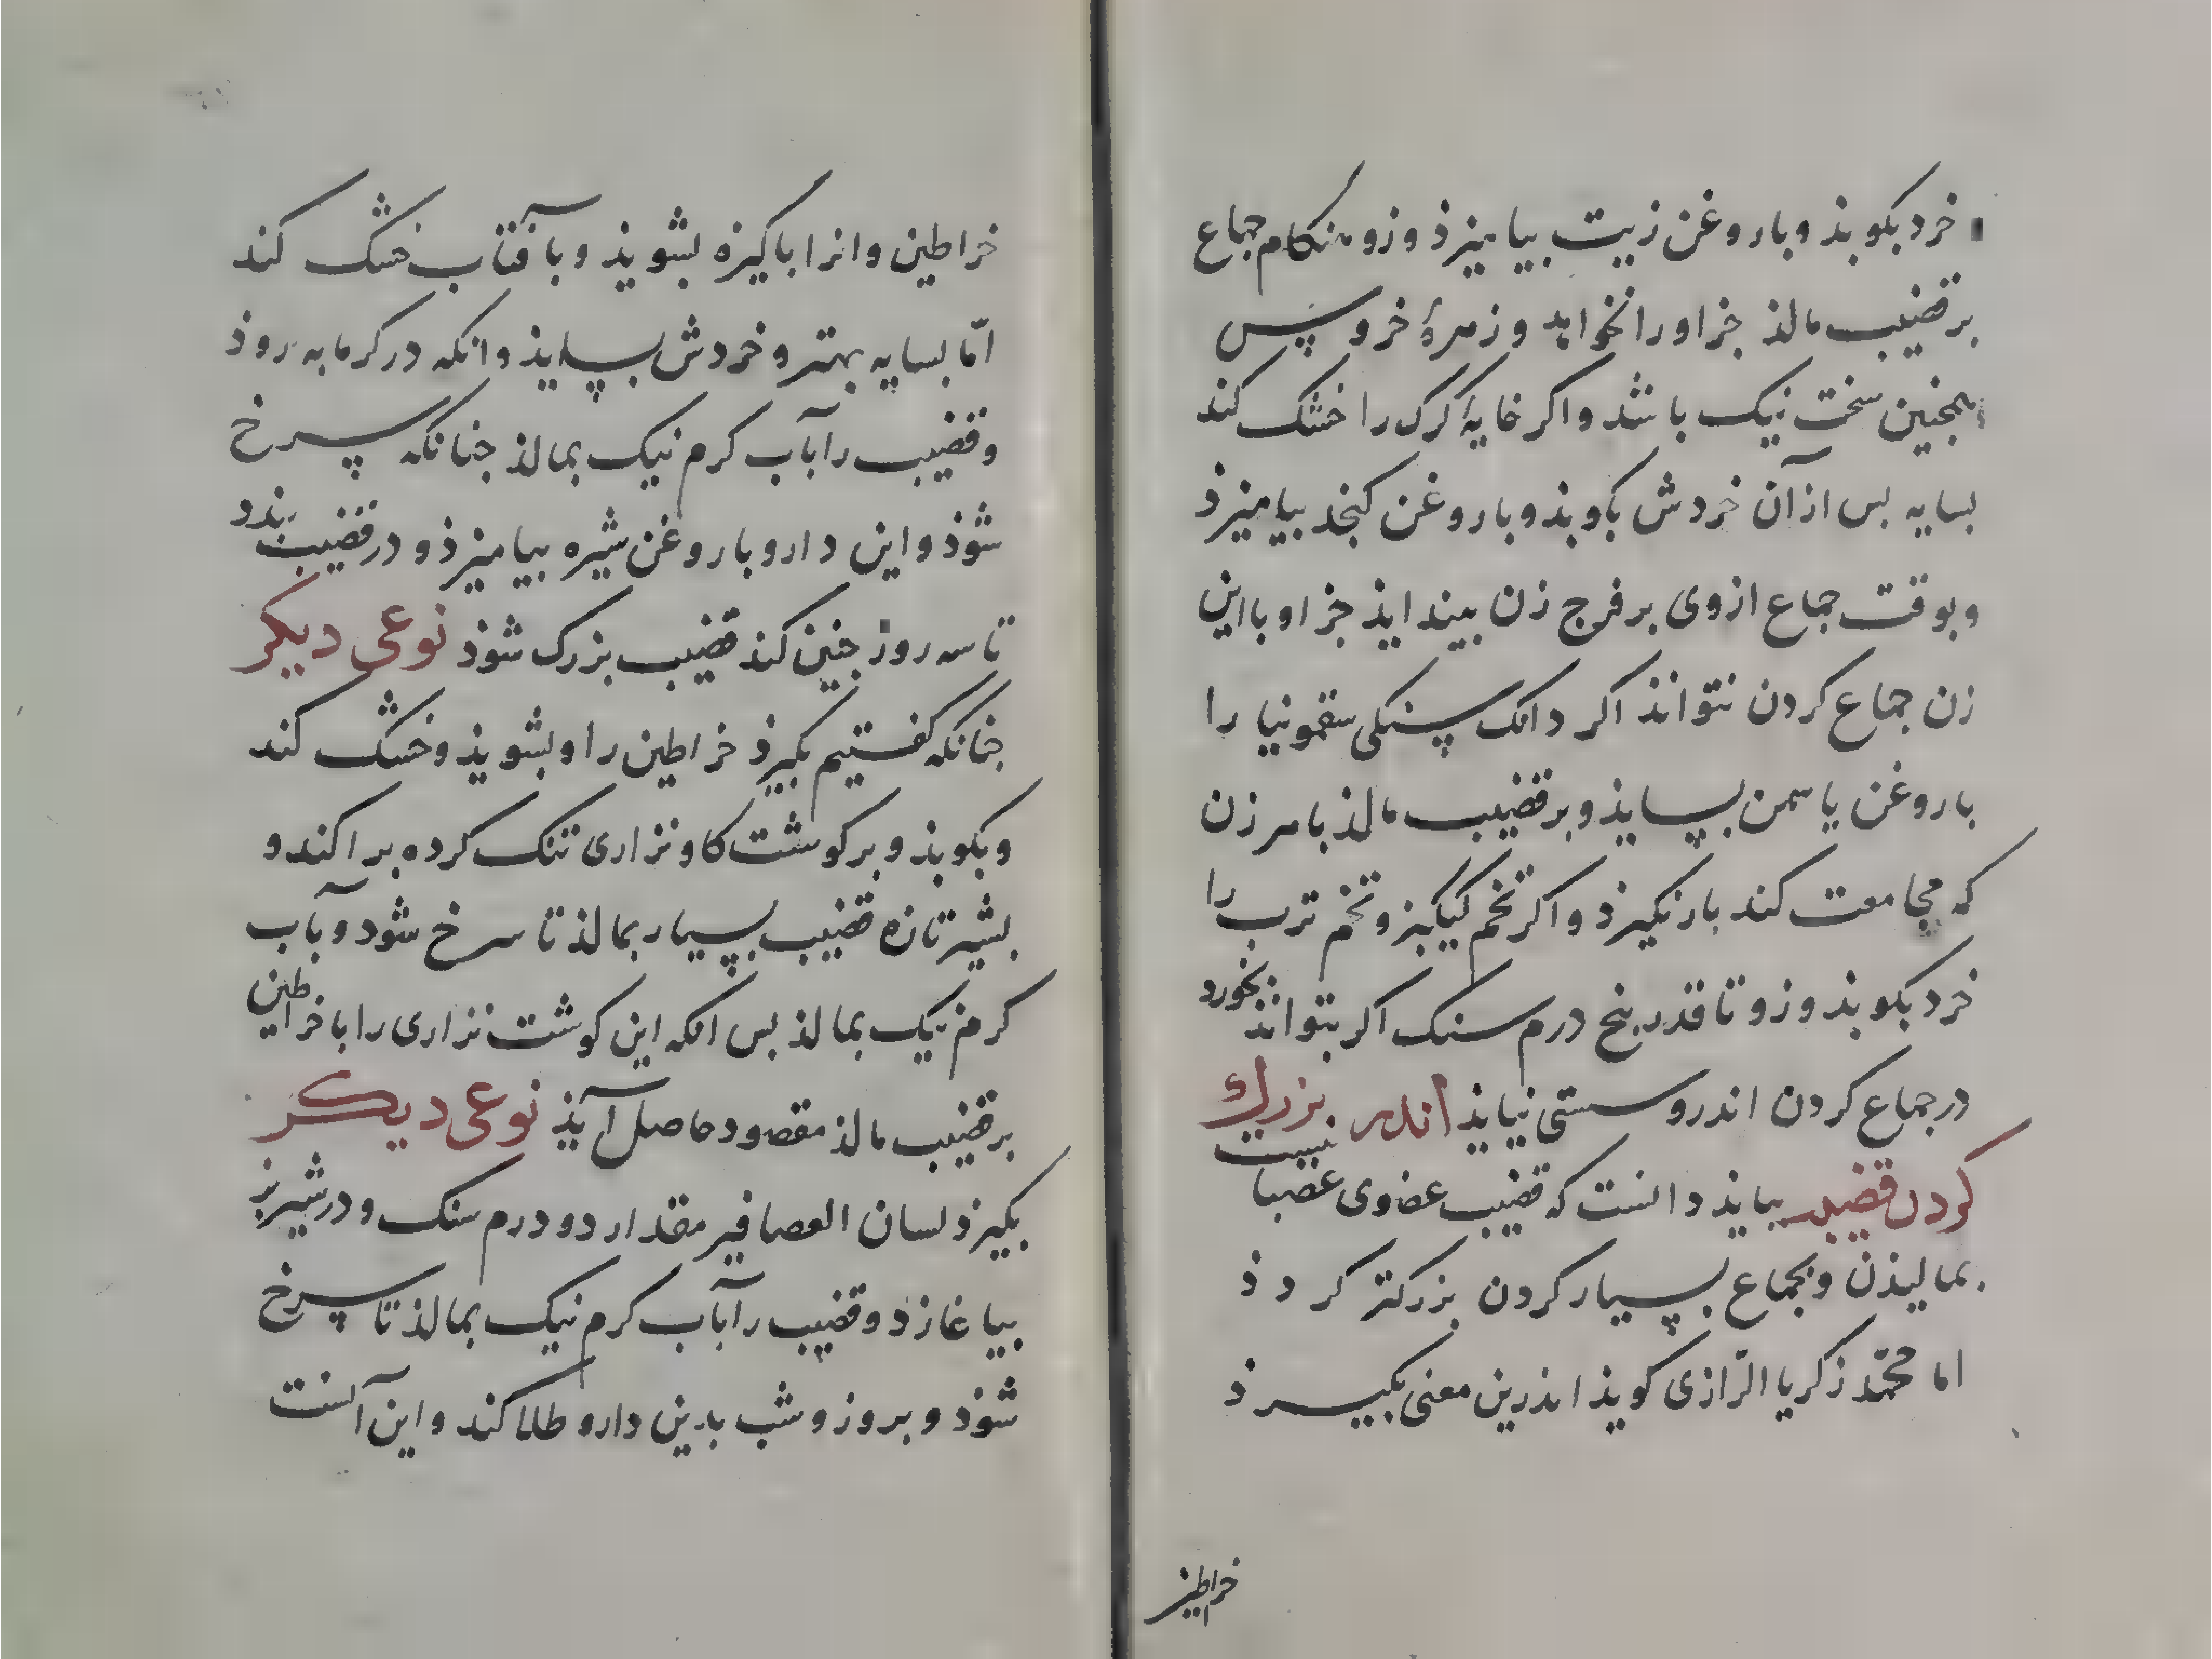 خرد بکوبذ و باروغن زیت بیامیزذ وزو هنکام جماع
بر قضیب مالذ جز اورا نخواهد و زهرهٔ خروس
همجنین سخت نیک باشد و اکر خایهٔ کرک را خشک کند
بسایه بس ازآن خردش بکوبذ و باروغن کنجد بیامیزذ
و بوقت جماع ازوی برفرج زن بیندایذ جز او بااین
زن جماع کردن نتوانذ اکر دانک سنکی سقمونیا را
باروغن یاسمن بساید و برقضیب مالذ باهر زن
که مجامعت کند بار نکیرذ و اکر تخم کیکیز و تخم ترب را
خرد بکوبذ وزو تا قدر پنج درم سنک اکر بتوانذ بخورد
درجماع کردن اندرو سستی نیایذ اندر بزرك
کردن قضیب ببایذ دانست که قضیب عضوی عصبانیست
بمالیذن و بجماع بسیار کردن بزرکتر کردذ
اما محمّد زکریا الرّازی کویذ اندرین معنی بکیرذ
خراطین
خراطین وانرا باکیزه بشویذ و بآفتاب خشک کند
امّا بسایه بهتر و خردش بسایذ وانکه درکرمابه روذ
و قضیب را بآب کرم نیک بمالذ جنانکه سرخ
شوذ واین دارو باروغن شیره بیامیزذ و در قضیب بندد
تا سه روز جنین کند قضیب بزرک شوذ نوعی دیکر
جنانکه کفتیم بکیرذ خراطین را و بشویذ و خشک کند
و بکوبذ و برکوشت کاو نزاری تنک کرده براکند و
بشیر تازه قضیب بسیار بمالذ تا سرخ شود و بآب
کرم نیک بمالذ بس انکه این کوشت نزاری را با خراطین
برقضیب مالذ مقصود حاصل آیذ نوعی دیکر
بکیرذ لسان العصافیر مقدار دو درم سنک و در شیر بز
بیاغازذ و قضیب را بآب کرم نیک بمالذ تا سرخ
شوذ و بروز و شب بدین دارو طلا کند و این آنست